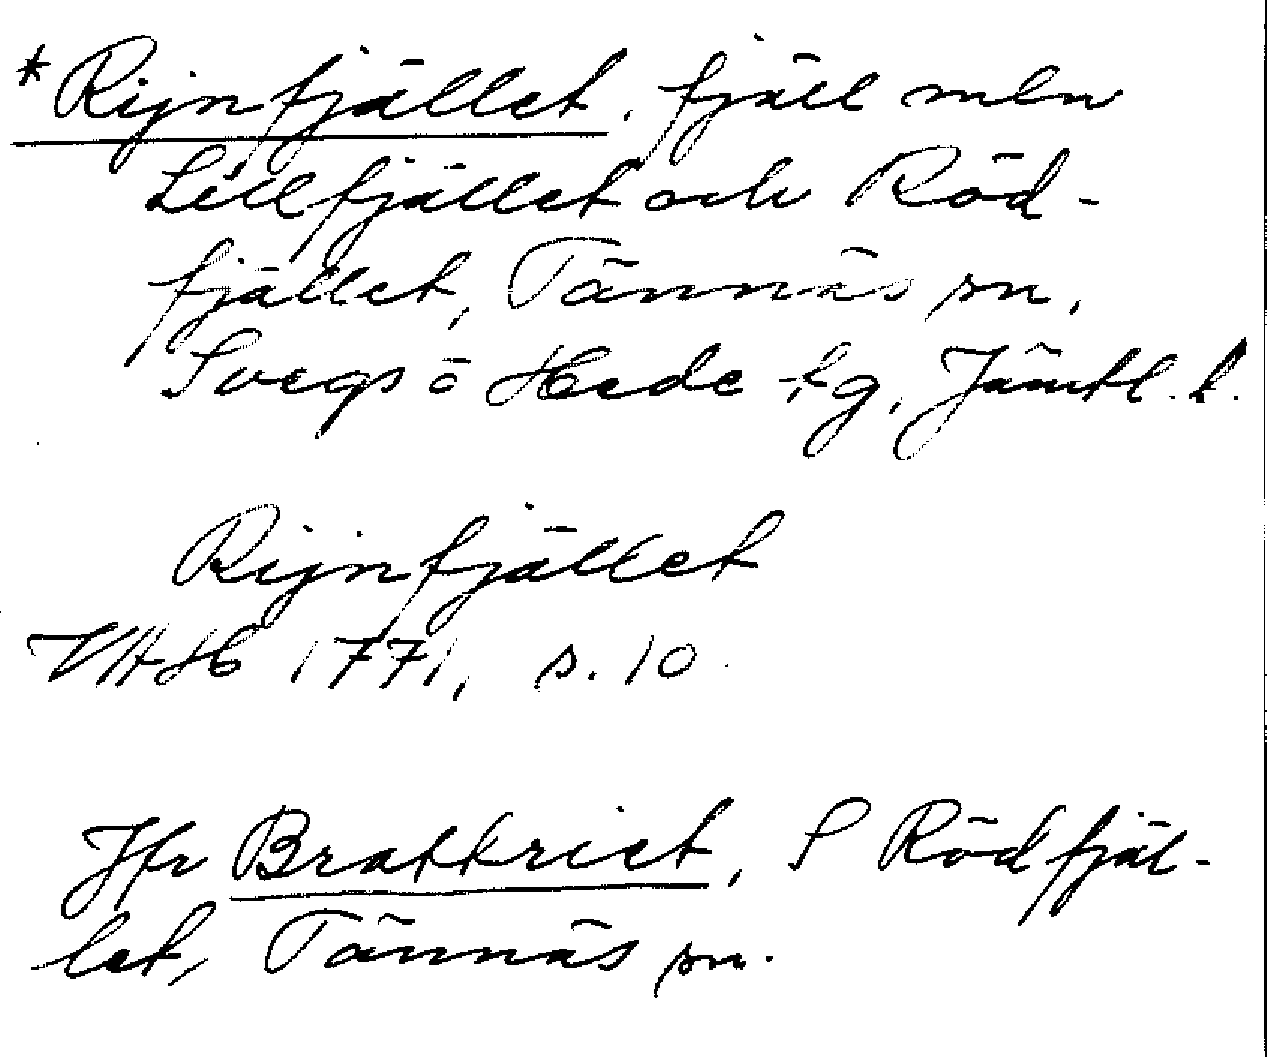 *Rijnfjället, fjäll mln
Lillfjället och Röd-
fjället, Tännäs sn,
Svegs o Hede tg, Jämtl. l.
Rijnfjället
VAH 1771, s. 10.
Jfr Brattriet, S Rödfjäl-
let, Tännäs sn.